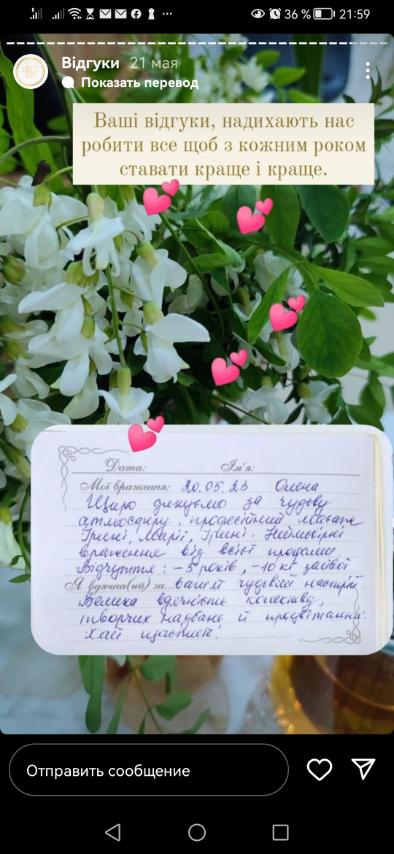 36 %
21:59
Відгуки 21 мая
Показать перевод
Ваші відгуки, надихають нас
робити все щоб з кожним роком
ставати краще і краще.
Дата: Ім'я:
Мої враження: 20.05.23 Олена
Щиро дякуємо за чудову
атмосферу, професійний
Ірині, Марії, Ірині. Неймовірні
враження від всієї процедури
Відчуття: -5 років, -10 кг зайвої
Я вдячна(ий) за... вагий чудовий настрій
Велика вдячність колективу,
творчих надбань й процвітання.
Хай щастить!
Отправить сообщение